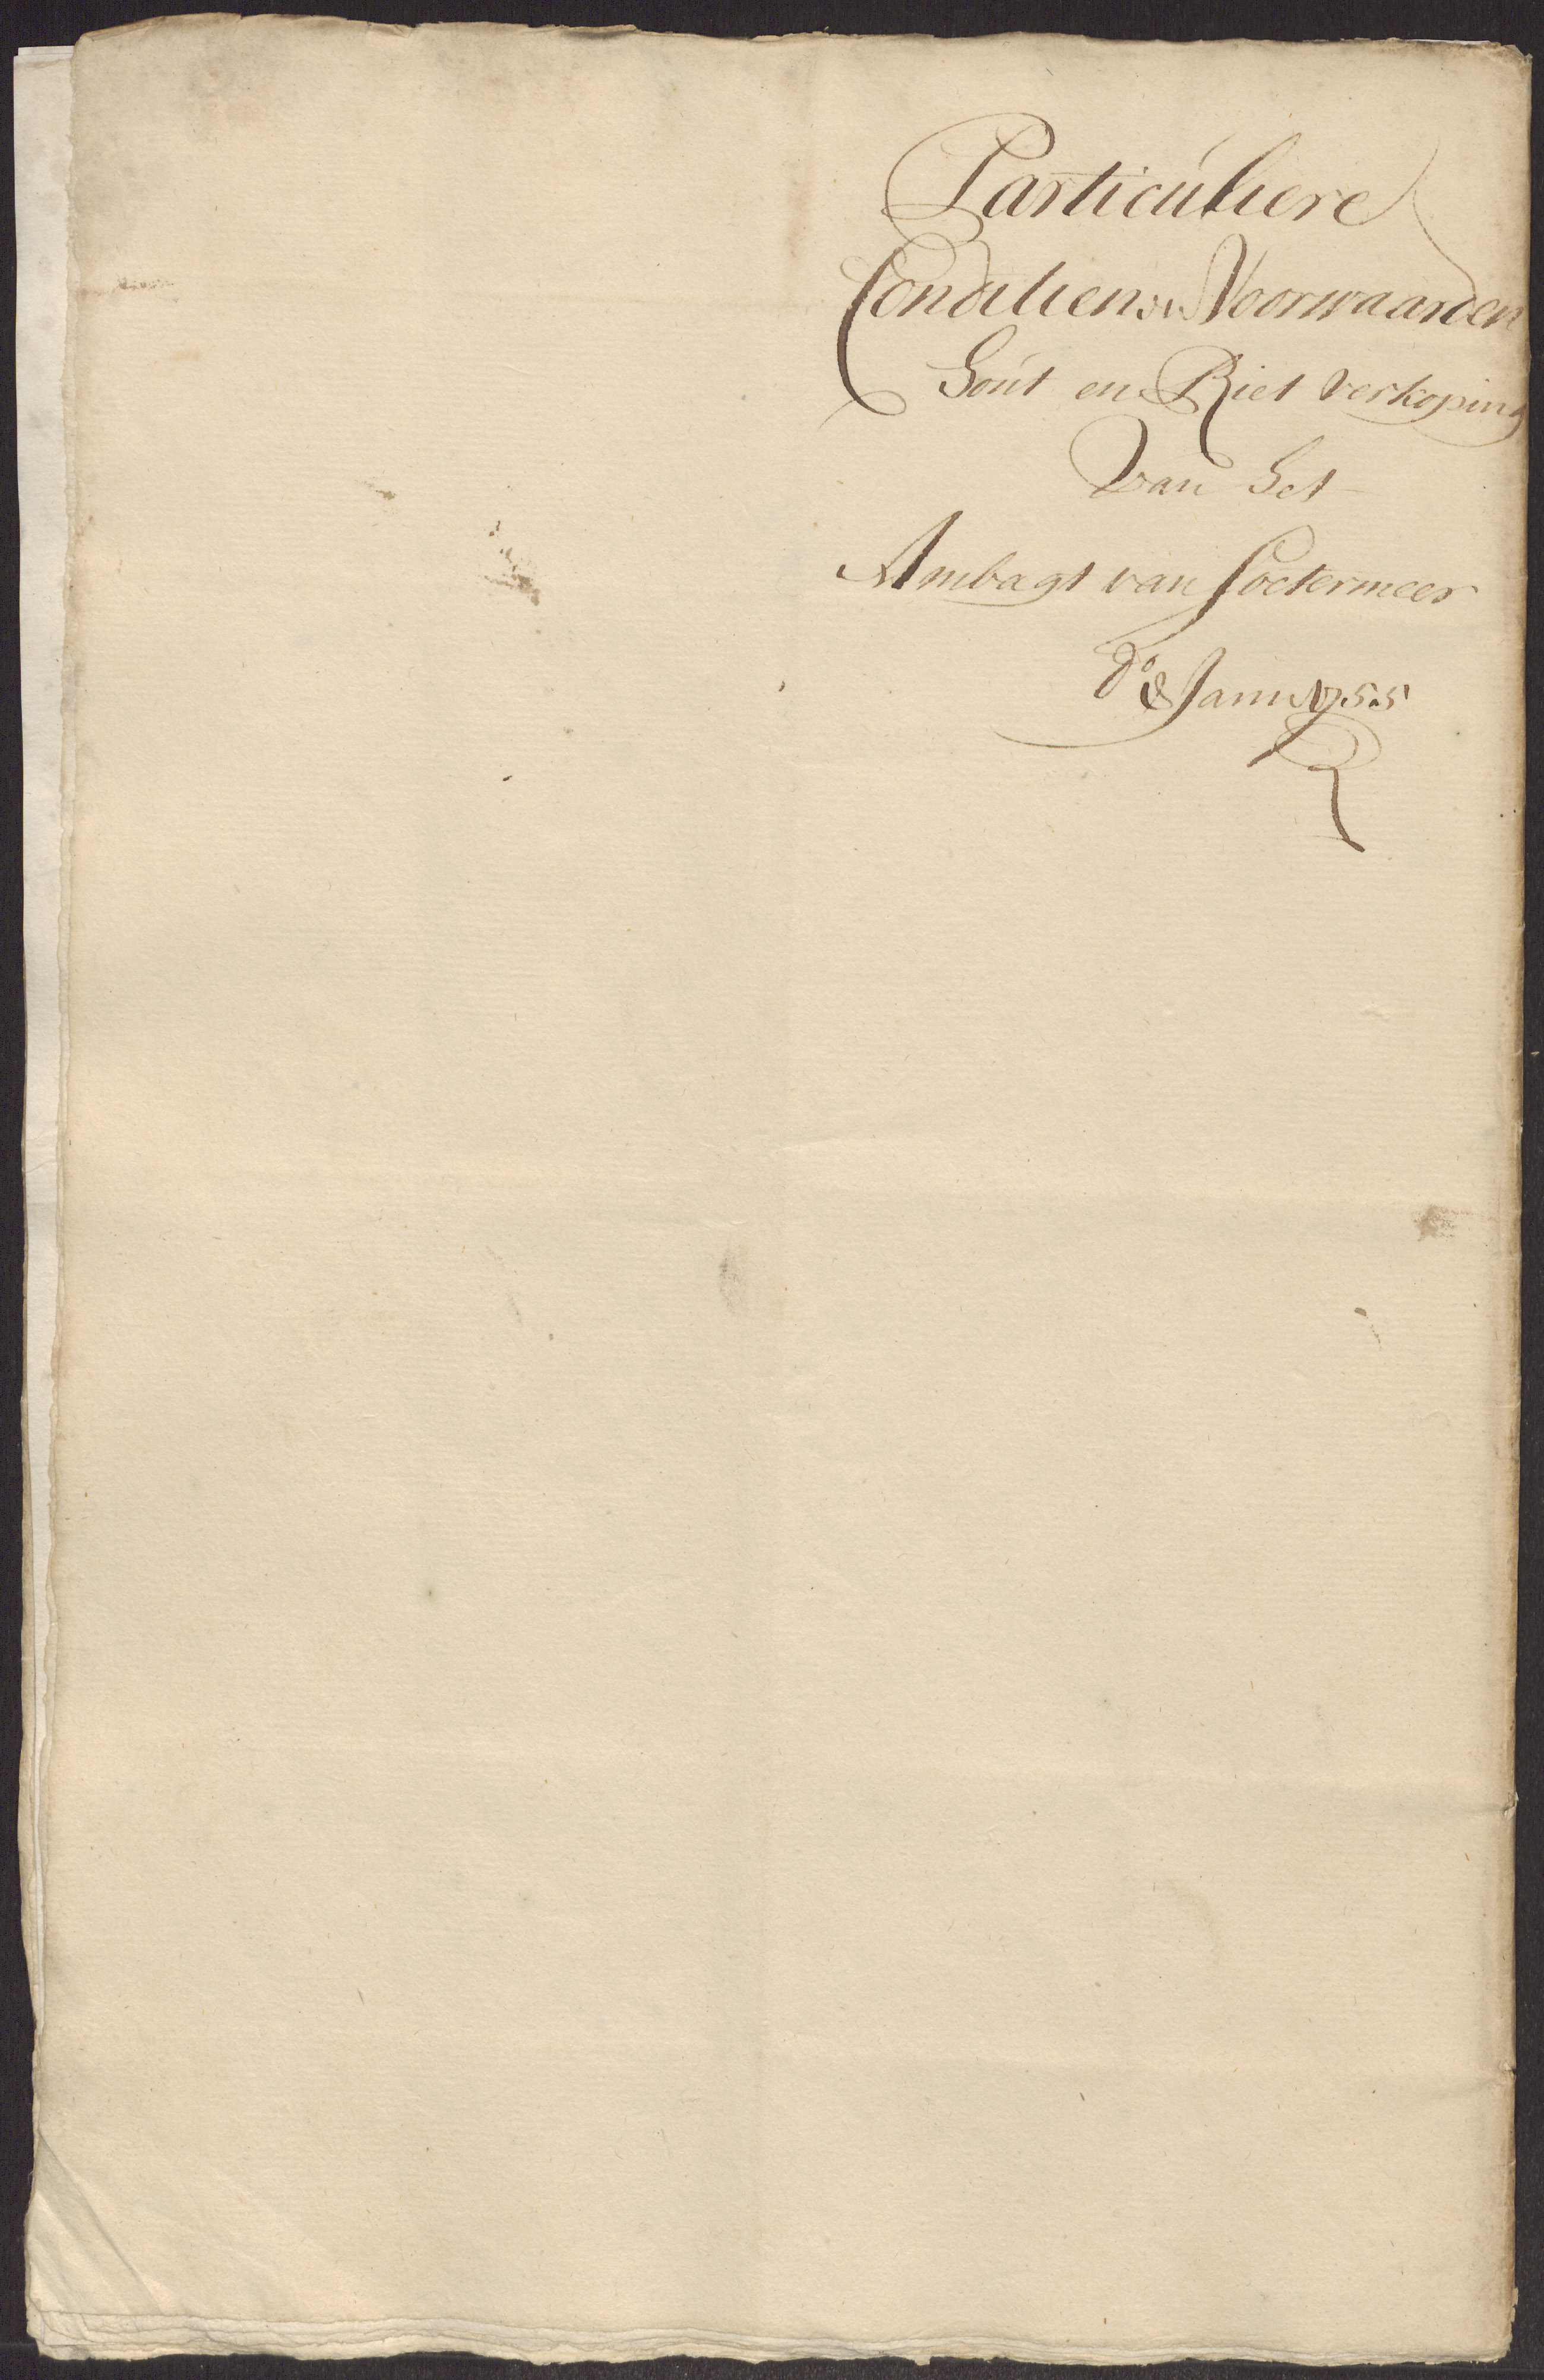 Particuliere
Conditien en Voorwaarden
Hout en Riet verkoping
Van Het
Ambagt van Soetermeer
do 8 Janu 1755